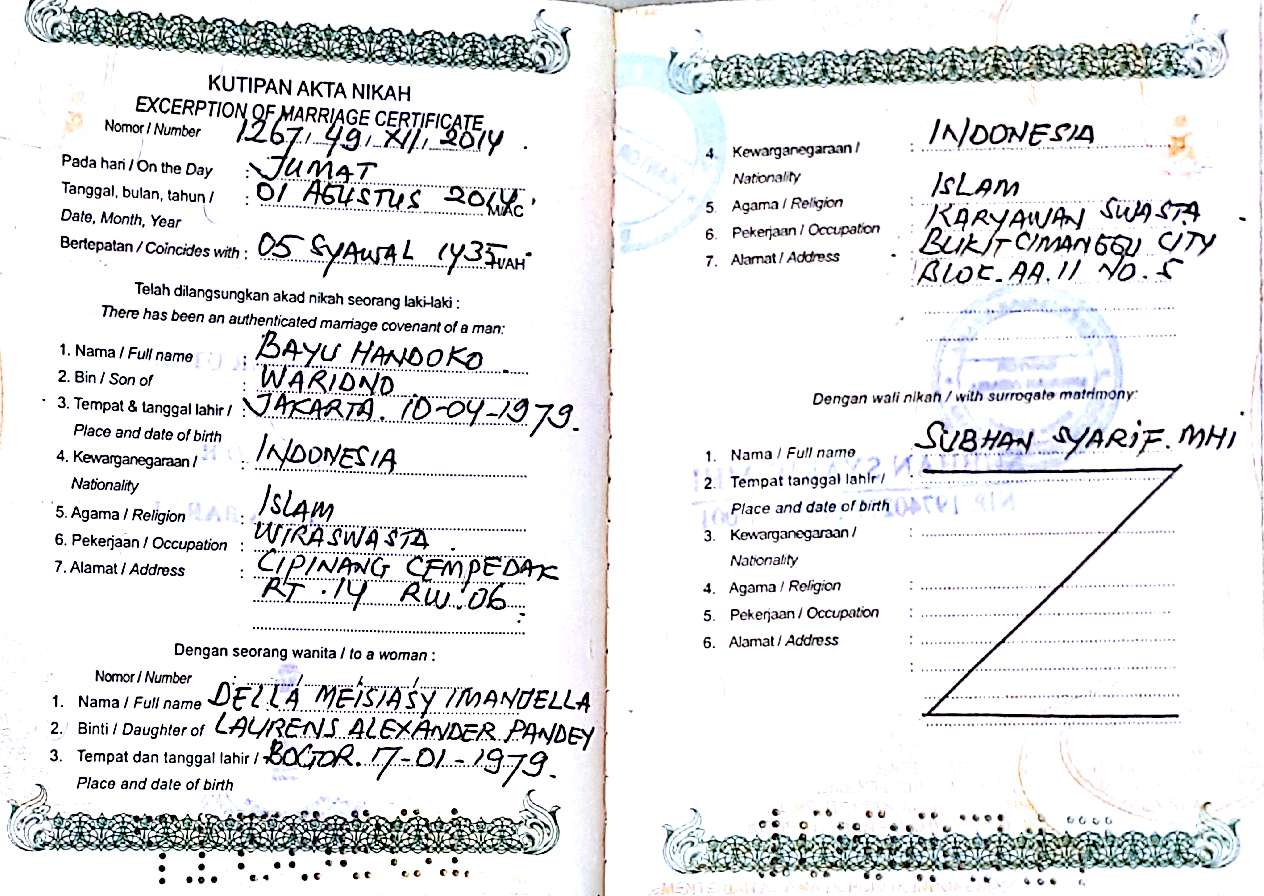 KUTIPAN AKTA NIKAH
EXCERPTION OF MARRIAGE CERTIFICATE
Nomor / Number 1267, 49, XII, 2014
Pada hari / On the Day : JUMAT
Tanggal, bulan, tahun / : 01 AGUSTUS 2014 M/AC
Date, Month, Year
Bertepatan / Coincides with : 05 SYAWAL 1435 H/AH
Telah dilangsungkan akad nikah seorang laki-laki :
There has been an authenticated marriage covenant of a man:
1. Nama / Full name : BAYU HANDOKO
2. Bin / Son of : WARIDNO
3. Tempat & tanggal lahir / : JAKARTA. 10-04-1979.
Place and date of birth
4. Kewarganegaraan / : INDONESIA
Nationality
5. Agama / Religion : ISLAM
6. Pekerjaan / Occupation : WIRASWASTA.
7. Alamat / Address : CIPINANG CEMPEDAK
RT. 14 RW. 06
Dengan seorang wanita / to a woman :
Nomor / Number
1. Nama / Full name DELLA MEISIASY IMANUELLA
2. Binti / Daughter of LAURENS ALEXANDER PANDEY
3. Tempat dan tanggal lahir / BOGOR. 17-01-1979.
Place and date of birth
4. Kewarganegaraan / : INDONESIA
Nationality
5. Agama / Religion : ISLAM
6. Pekerjaan / Occupation : KARYAWAN SWASTA
7. Alamat / Address : BUKIT CIMANGGU CITY
BLOK. AA. 11 NO. 5
Dengan wali nikah / with surrogate matrimony:
1. Nama / Full name : SUBHAN SYARIF. MHI
2. Tempat tanggal lahir / :
Place and date of birth
3. Kewarganegaraan / :
Nationality
4. Agama / Religion :
5. Pekerjaan / Occupation :
6. Alamat / Address :